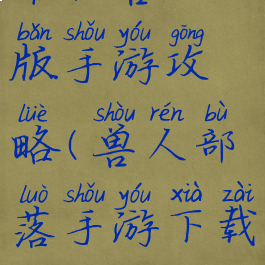 bǎn shǒu yóu gōng
版手游攻
lüè shòu rén bù
略(兽人部
luò shǒu yóu xià zài
落手游下载